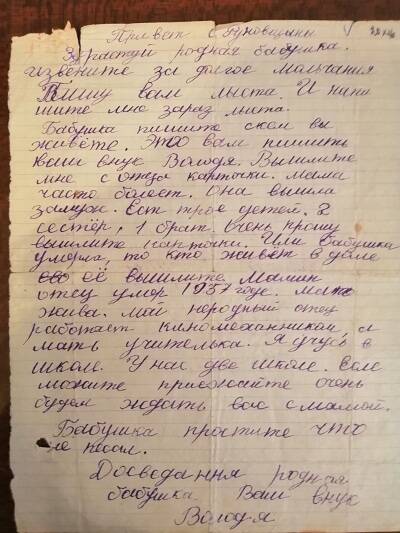 Привет с Руновщины
Здраствуй родная бабушка.
извените за долгое молчания
Пишу вам лыста. И напи
шите мне зараз лыта.
Бабушка пишите ском вы
живёте. Это вам пишить
ваш внук Володя. Вышлите
мне с отца карточки. мама
часто болеет. Она вышла
замуж. Ест трое детей. 2
сестёр, 1 брат. Очень прошу
вышлите карточки. Или бабушка
умерла, то кто живёт в доме
её вышлите. Мамин
отец умор 1957 годе. мать
жива. мой неродный отец
работает киномеханником, а
мать учителька. Я учусь в
школе. У нас две школе. Если
можите приезжайте очень
будем ждать вас с мамой.
Бабушка простите что
не писал.
Досведання родная
бабушка. Ваш внук
Володя